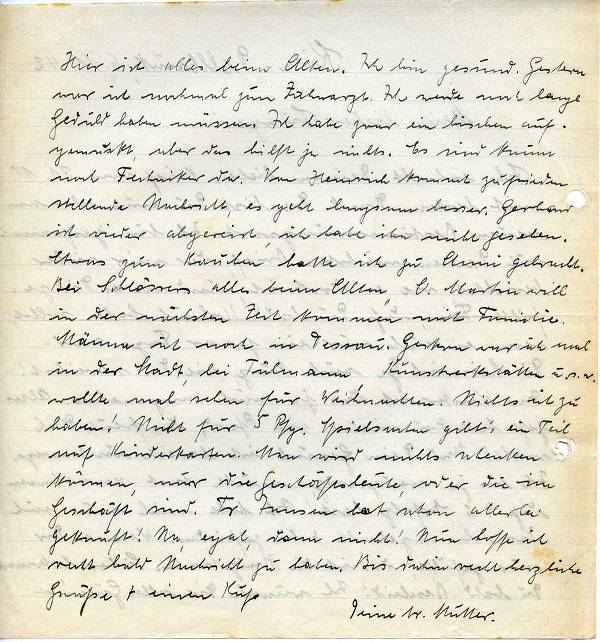 Hier ist alles beim Alten. Ich bin gesund. Gestern
war ich nochmal zum Zahnarzt. Ich werde noch lange
Geduld haben müssen. Ich habe zwar ein bischen auf-
gemuckt, aber das hilft ja nichts. Es sind kaum
noch Techniker da. Von Heinrich kommt zufrieden
stellende Nachricht, es geht langsam besser. Gerhard
ist wieder abgereist, ich habe ihn nicht gesehen.
Etwas zum Rauchen hatte ich zu Anni gebracht.
Bei Schlössers alles beim Alten. O. Martin will
in der nächsten Zeit kommen mit Familie.
Männe ist noch in Dessau. Gestern war ich mal
in der Stadt, bei Tülmann Kunstwerkstätten u.s.w.
wollte mal sehen für Weihnachten. Nichts ist zu
haben! Nicht für 5 Pfg. Spielsachen gibt's ein Teil
auf Kinderkarten. Man wird nichts schenken
können, nur die Geschäftsleute, oder die im
Geschäft sind. Fr. Jansen hat schon allerlei
gekauft! Na, egal, dann nicht! Nun hoffe ich
recht bald Nachricht zu haben. Bis dahin recht herzliche
Grüße + einen Kuß
Deine tr. Mutter.